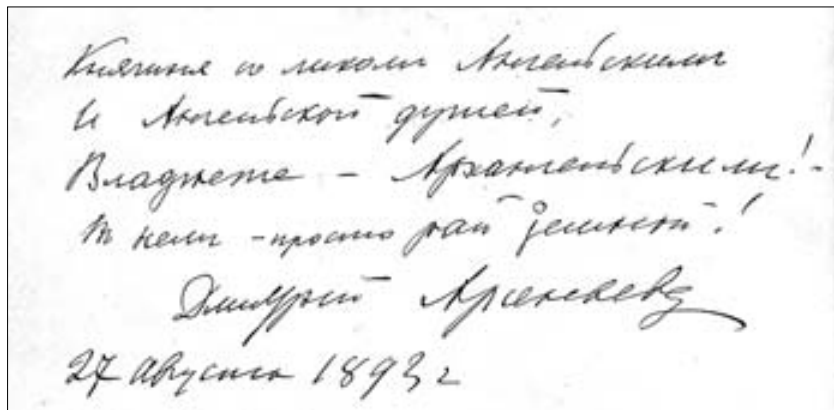 Княгиня со ликомъ Ангельскимъ
И Ангельской душей,
Владѣете – Архангельскимъ! –
Въ немъ – просто рай земной!
Дмитрій Арсеньевъ
27 Августа 1893 г